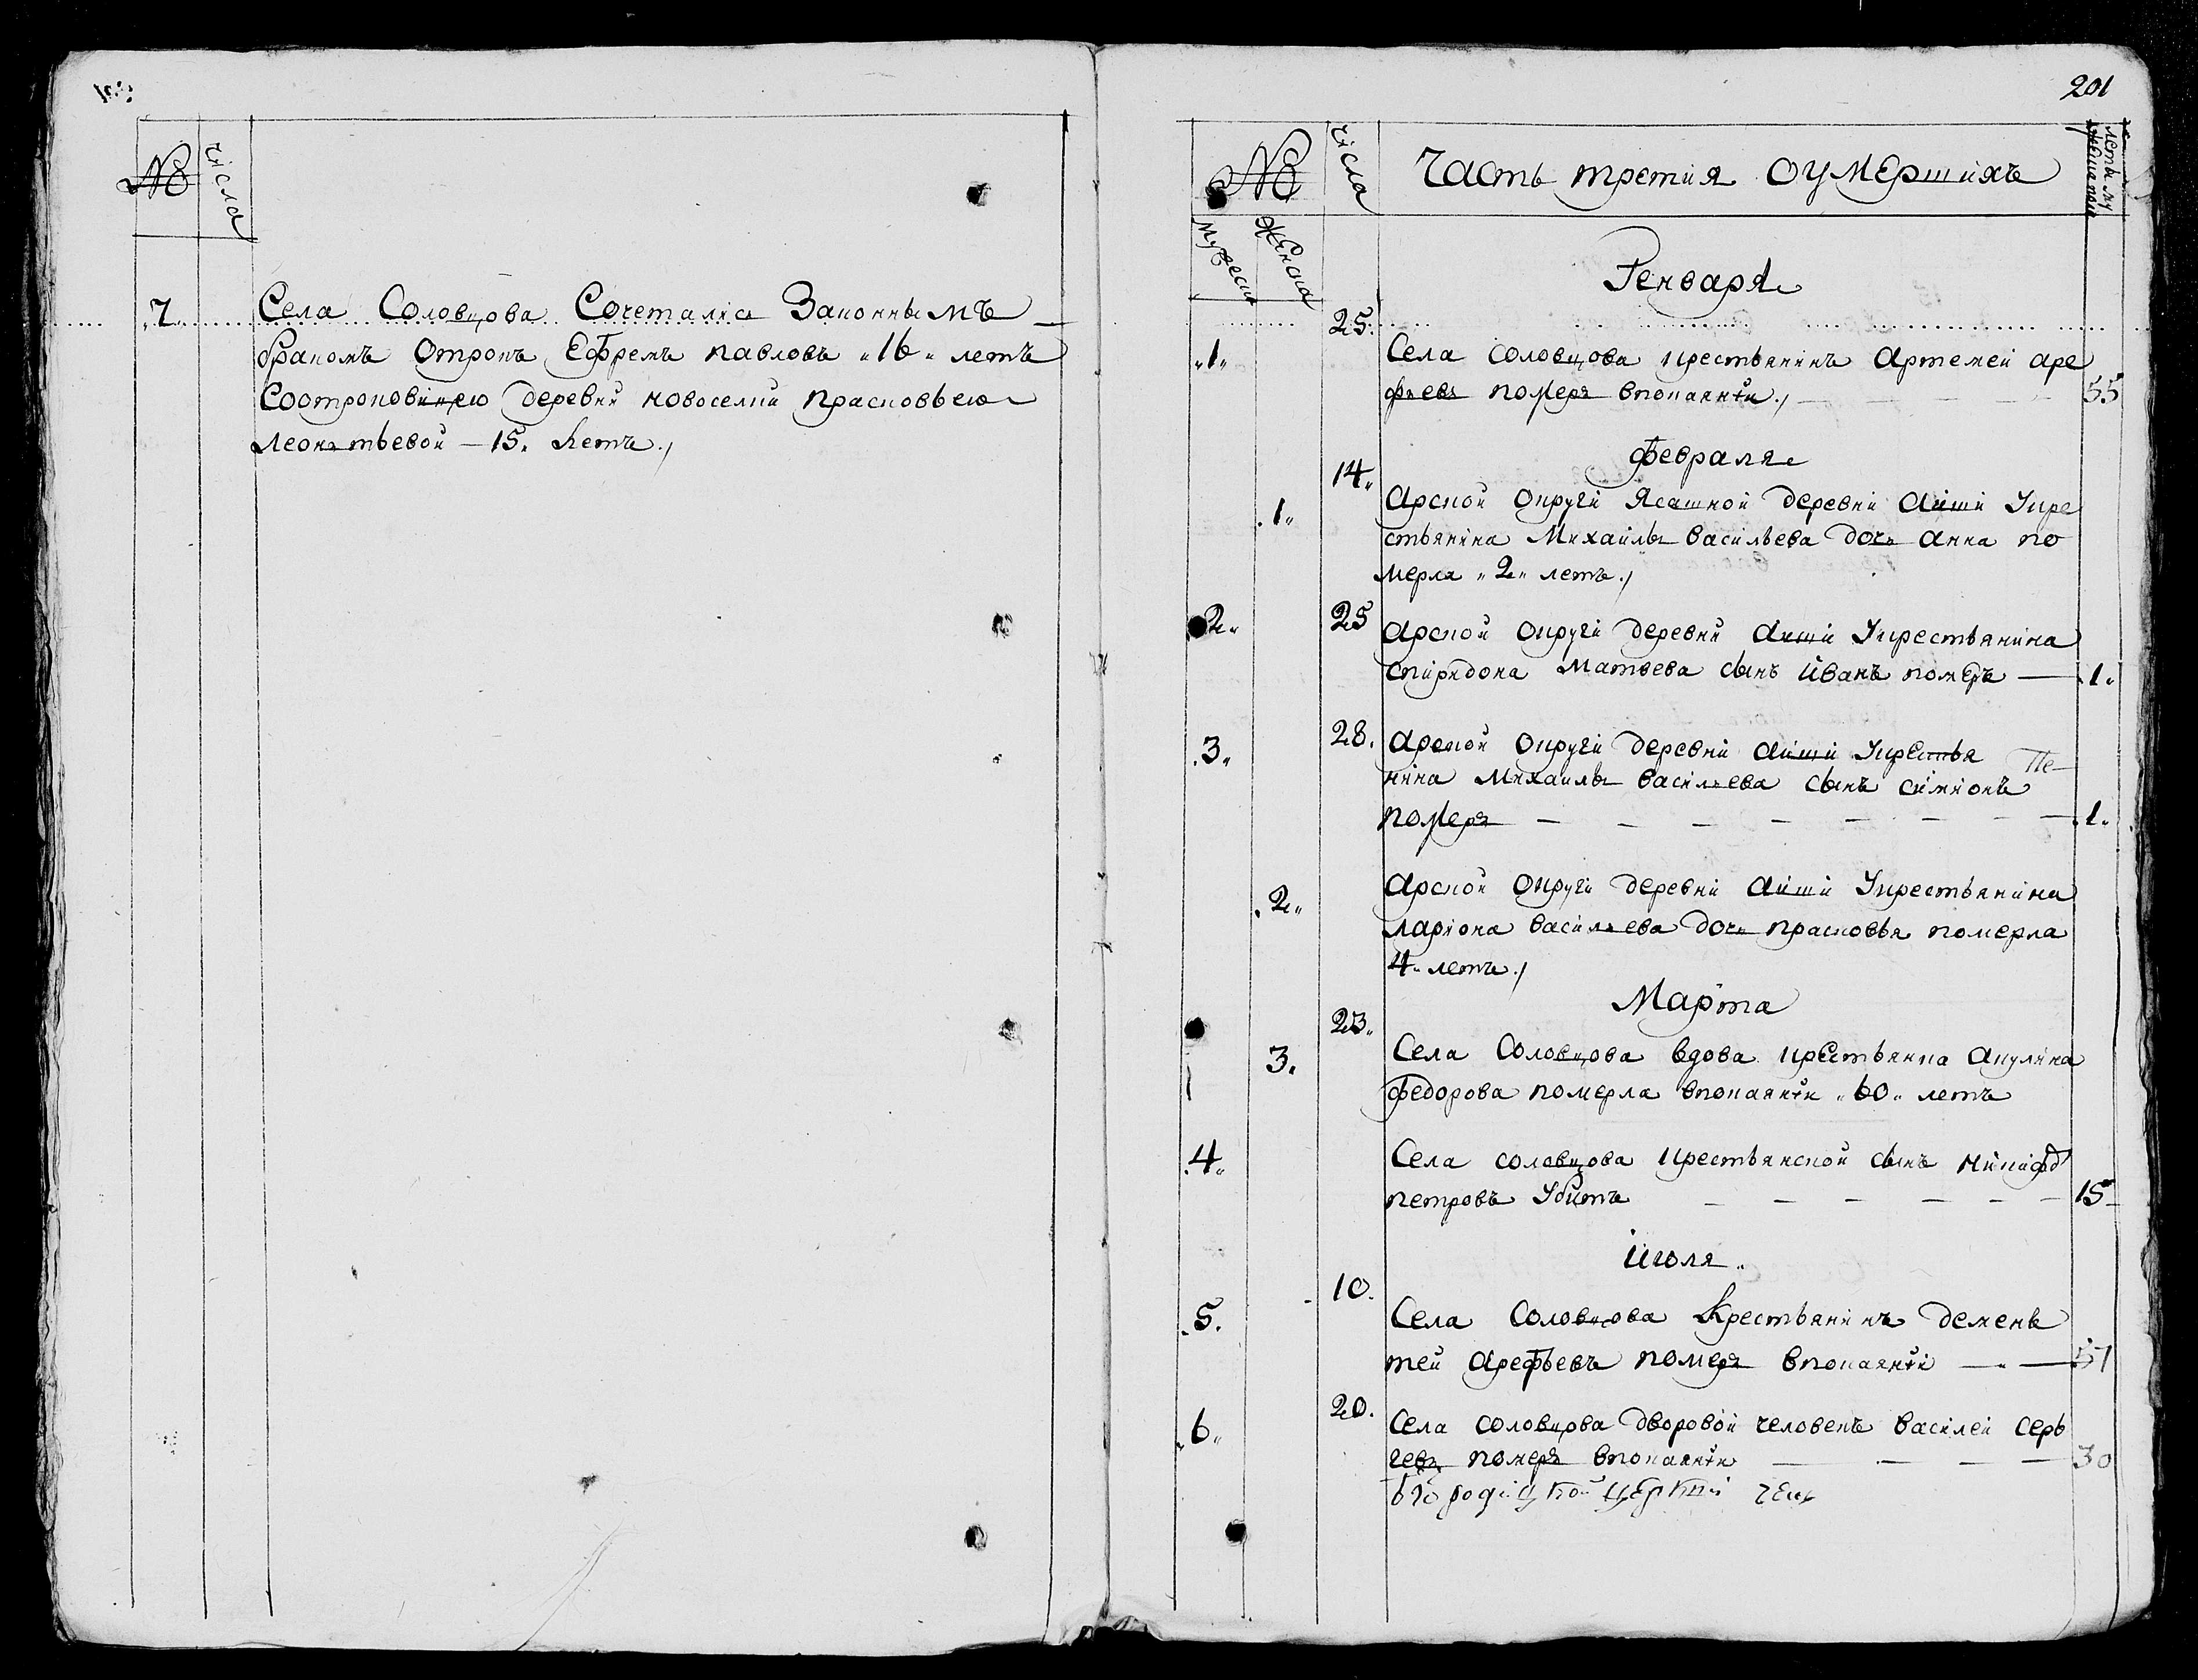 №
числа
7
Села Соловцова Сочеталис Законнымъ
бракомъ отрокъ Ефремъ павловъ 16 летъ
Соотроковицею деревни новоселки прасковьею
леонътьевой — 15. летъ.
201
№
числа
Часть третия оумершихъ
летъ му
мужеск
женска
Генваря
25.
1
Села соловцова крестьянинъ Артемей аре
фьевъ померъ впокаянiи.
55
февраля
14.
1.
Арской округи Ясашной деревни Аиши Укре
стьянина Михайлы васильева дочь анна по
мерла 2 летъ.
2.
25
Арской округи деревни Аиши Укрестьянина
спиридона матвеева сынъ иванъ померъ —
1.
3.
28.
Арской округи деревни аиши Укрестья
нина михайлы васильева сынъ симионъ
померъ — — — — — — — —
1.
2.
Арской округи деревни аиши Укрестьянина
лариона васильева дочь прасковья померла
4 летъ.
Марта
23.
3.
Села Соловцова вдова крестьянка акулина
федорова померла впокаянiи 60 летъ
4.
Села соловцова крестьянской сынъ никифоръ
петровъ Убитъ — — — — — —
15
июля.
10.
5.
Села Соловцова Крестьянинъ демень
тей арефьевъ померъ впокаянiи — —
57
20.
6.
Села соловцова дворовой человекъ василеи серь
геевъ померъ впокаянiи — — — —
30
церкви